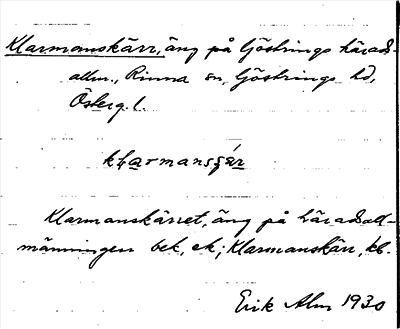 Klarmanskärr, äng på Göstrings härads-
allm., Rinna sn, Göstrings hd,
Österg. l.
klarmansçär
Klarmanskärret, äng på häradsall-
männingen bek, ek; Klarmanskärr, kb.
Erik Alm 1930